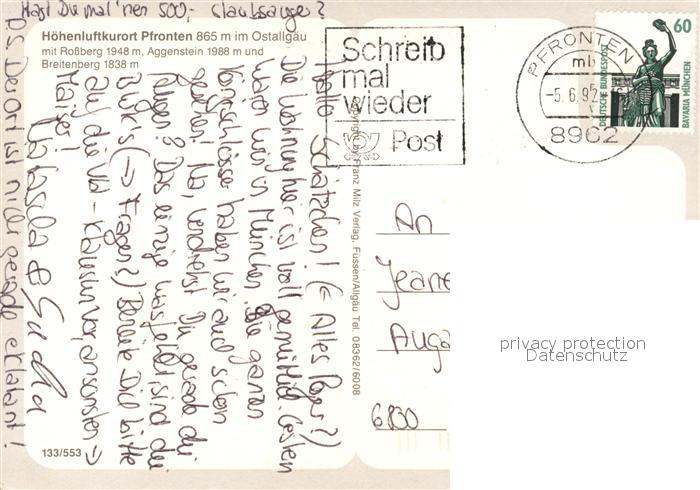 Hast Du mal 'nen 500,-
Höhenluftkurort Pfronten 865 m im Ostallgäu
mit Roßberg 1948 m, Aggenstein 1988 m und
Breitenberg 1838 m
Hallo Schätzchen! (= Alles Paper?)
Die Wohnung hier ist voll gemütlich. Gestern
waren wir in München. Die ganzen
Königschlösser haben wir auch schon
gesehen! Na, verdienst Du gerade
Das einzige was fehlt sind die
(→ Fragen?) Bereite Dich bitte
auf die ansonsten →
Natascha &
PS Der Ort ist hier gerade
133/553
Copyright by Franz Milz Verlag, Füssen/Allgäu Tel. 08362/6008
Schreib
mal
wieder
Post
PFRONTEN
mb
-5.6.92
8962
60
DEUTSCHE BUNDESPOST
BAVARIA MÜNCHEN
An
Jeane
Auga
6800
privacy protection
Datenschutz